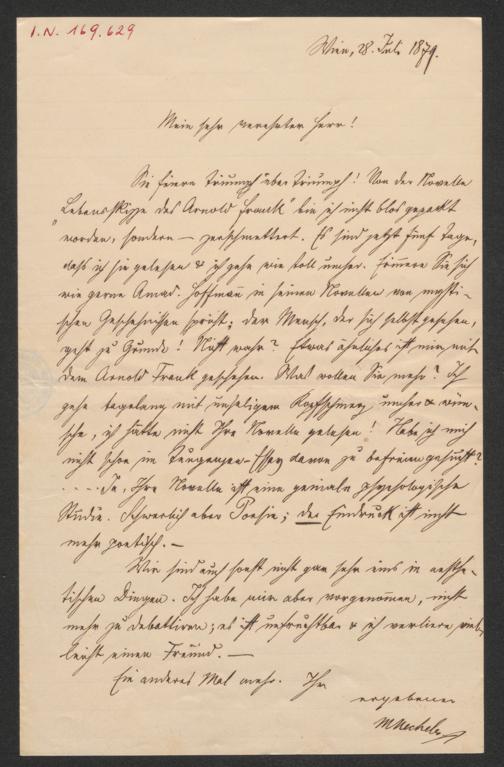 I.N. 169.629
Wien, 28. Juli 1879.
Mein sehr verehrter Herr!
Sie feiern Triumph über Triumph! Von der Novelle
„Lebensskizze des Arnold Frank“ bin ich nicht blos gepackt
worden, sondern — zerschmettert. Es sind jetzt fünf Tage,
daß ich sie gelesen & ich gehe wie toll umher. Erinnern Sie sich
wie gerne Amad. Hoffmann in seinen Novellen von mysti-
schen Geschehnissen spricht; der Mensch, der sich selbst gesehen,
geht zu Grunde! Nicht wahr? Etwas ähnliches ist mir mit
dem Arnold Frank geschehen. Was wollen Sie mehr? Ich
gehe tagelang mit unseligem Kopfschmerz umher & wün-
sche, ich hätte nicht Ihre Novelle gelesen! Habe ich mich
nicht schon im Essay davon zu befreien gesucht?
..... Ja, Ihre Novelle ist eine geniale physchologische
Studie. Schwerlich aber Poesie; der Eindruck ist nicht
mehr poetisch. —
Wir sind auch sonst nicht gar sehr eins in aesthe-
tischen Dingen. Ich habe mir aber vorgenommen, nicht
mehr zu debattiren; es ist unfruchtbar & ich verliere viel-
leicht einen Freund. —
Ein anderes Mal mehr. Ihr
ergebener
MNecheles